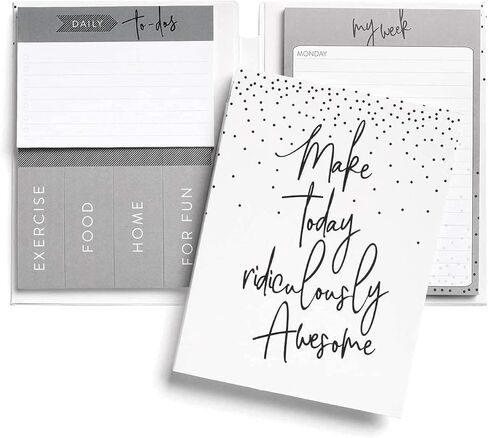 DAILY to-dos
EXERCISE
FOOD
HOME
FOR FUN
my week
MONDAY
Make
Today
ridiculously
Awesome